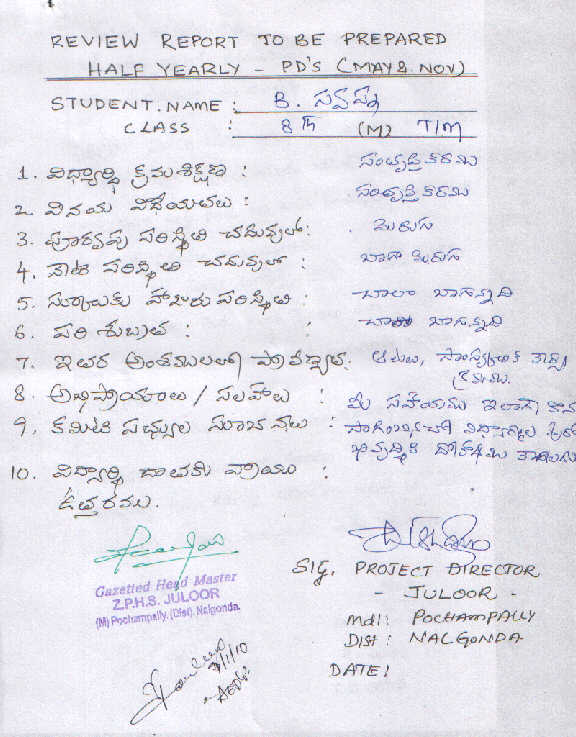 REVIEW REPORT TO BE PREPARED
HALF YEARLY - PD'S (MAY & NOV)
STUDENT. NAME : B. స్వప్న
CLASS : 8 Th (M) T/M
1. విద్యార్థి క్రమశిక్షణ : సంతృప్తికరము
2. వినయ విధేయతలు : సంతృప్తికరము
3. పూర్వపు పరిస్థితి చదువులో : మెరుగు
4. నేటి పరిస్థితి చదువులో : బాగా మెరుగు
5. స్కూలుకు హాజరు పరిస్థితి : చాలా బాగున్నది
6. పరిశుభ్రత : చాలా బాగున్నది
7. ఇతర అంశములలో ప్రావీణ్యత : ఆటలు, సాంస్కృతిక
8. అభిప్రాయాలు / సలహాలు : మీ సహాయము ఇలాగే
9. కమిటి సభ్యుల సూచనలు :
10. విద్యార్థి దాతకు వ్రాయు :
ఉత్తరము.
Gazetted Head Master
Z.P.H.S. JULOOR
(M) Pochampally, (Dist). Nalgonda.
SIG. PROJECT DIRECTOR
- JULOOR -
Mdl : POCHAMPALLY
Dist : NALGONDA
DATE :